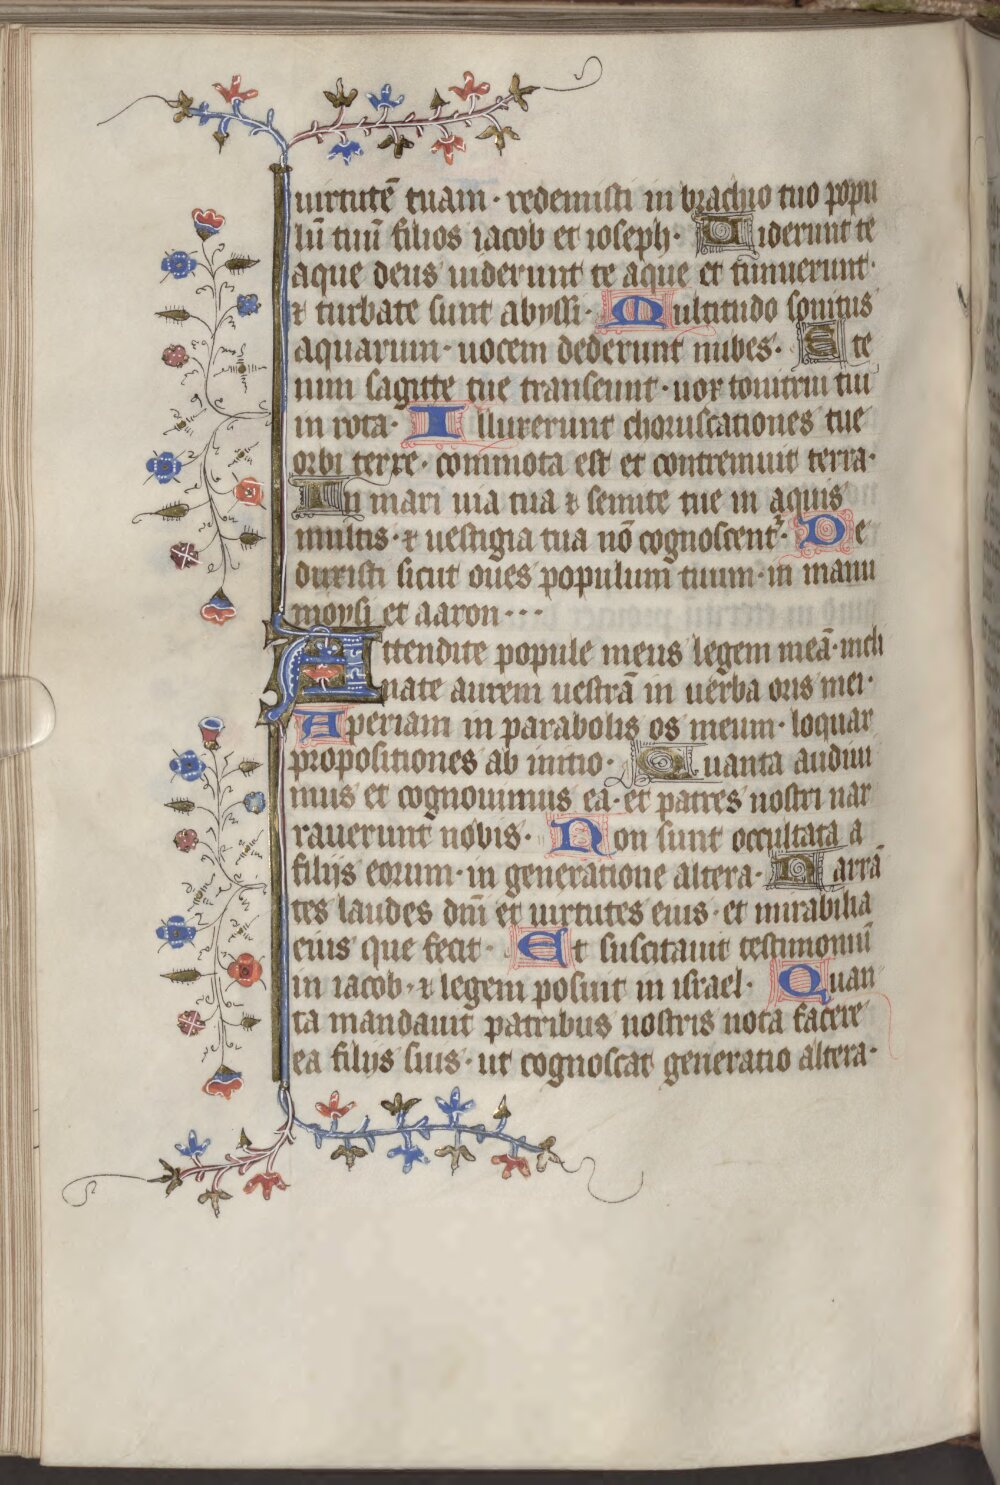 uirtutē tuam · redemisti in brachio tuo popu
lū tuū filios iacob et ioseph · Uiderunt te
aque deus uiderunt te aque et timuerunt ·
⁊ turbate sunt abyssi · Multitudo sonitus
aquarum · uocem dederunt nubes · Ete
nim sagitte tue transeunt · uox tonitrui tui
in rota · Illuxerunt choruscationes tue
orbi terre · commota est et contremuit terra ·
In mari uia tua ⁊ semite tue in aquis
multis · ⁊ uestigia tua nō cognoscent᷑ · De
duxisti sicut oues populum tuum · in manu
moysi et aaron · · ·
Attendite popule meus legem meā · incli
nate aurem uestrā in uerba oris mei ·
Aperiam in parabolis os meum · loquar
propositiones ab initio · Quanta audiui
mus et cognouimus ea · et patres nostri nar
rauerunt nobis · Non sunt occultata a
filijs eorum · in generatione altera · Narrā
tes laudes dnī et uirtutes eius · et mirabilia
eius que fecit · Et suscitauit testimoniū
in iacob · ⁊ legem posuit in israel · Quan
ta mandauit patribus nostris nota facere
ea filijs suis · ut cognoscat generatio altera ·